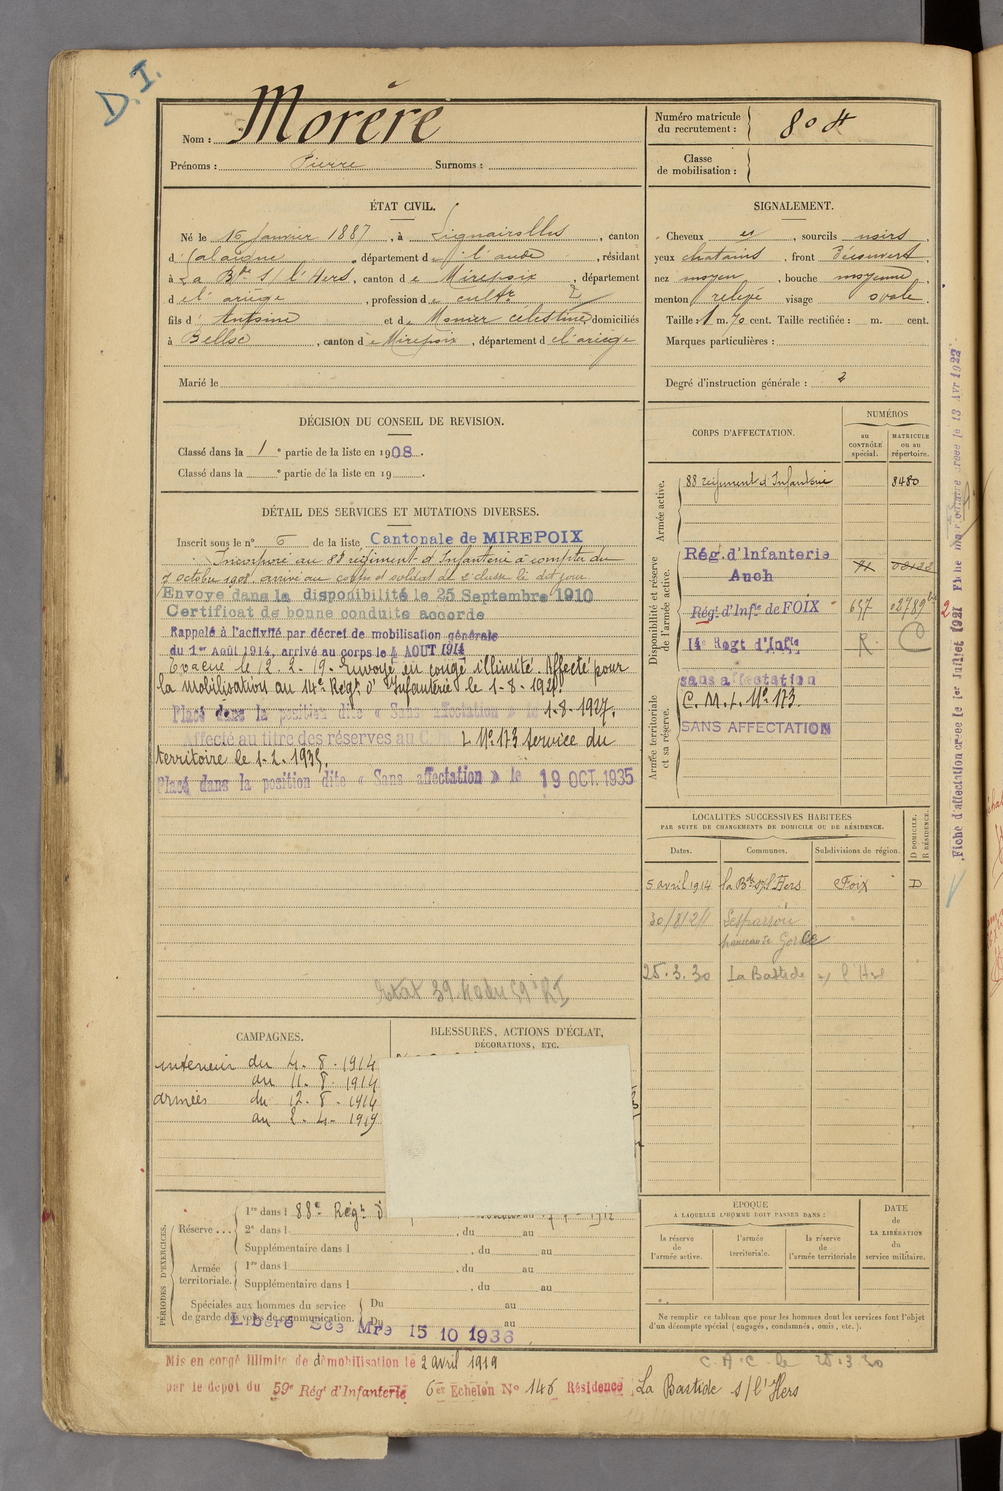 D.I.
Nom : Morère
Prénoms : Pierre Surnoms :
Numéro matricule
du recrutement : 804
Classe
de mobilisation :
ÉTAT CIVIL.
Né le 16 janvier 1887, à , canton
d , département de l'aude, résidant
à La Bde s/ l'Hers, canton de Mirepoix, département
de l'ariège, profession de cultr
fils d' Antoine et de Monier célestine, domiciliés
à Belloc, canton de Mirepoix, département de l'ariège
Marié le
SIGNALEMENT.
Cheveux et, sourcils noirs,
yeux chatains, front découvert,
nez moyen, bouche moyenne,
menton relevé visage ovale.
Taille : 1 m. 70 cent. Taille rectifiée : m. cent.
Marques particulières :
Degré d'instruction générale : 2
DÉCISION DU CONSEIL DE REVISION.
Classé dans la 1e partie de la liste en 1908.
Classé dans la e partie de la liste en 19 .
DÉTAIL DES SERVICES ET MUTATIONS DIVERSES.
Inscrit sous le n° 6 de la liste Cantonale de MIREPOIX
Incorporé au 88 régiment d'Infanterie à compter du
7 octobre 1908, arrivé au corps et soldat de 2e classe le dit jour
Envoyé dans la disponibilité le 25 Septembre 1910
Certificat de bonne conduite accordé
Rappelé à l'activité par décret de mobilisation générale
du 1er Août 1914, arrivé au corps le 4 AOUT 1914
Evacué le 12-2-19. Envoyé en congé illimité. Affecté pour
la mobilisation au 14e Régt d'Infanterie le 1-8-192
Placé dans la position dite « Sans affectation » le 1-8-1927.
Affecté au titre des réserves au C. M. L N° 173 service du
territoire le 1-2-1935.
Placé dans la position dite « Sans affectation » le 19 OCT. 1935
CORPS D'AFFECTATION.
NUMÉROS
au
CONTRÔLE
spécial.
MATRICULE
ou au
répertoire.
Armée active.
88 régiment d'Infanterie 8480
Disponibilité et réserve
de l'armée active.
Rég. d'Infanterie
Auch
Rég. d'Infie de FOIX 657 02789
14e Regt d'Infie R C
sans affectation
Armée territoriale
et sa réserve.
C. M. L. N° 173.
SANS AFFECTATION
Fiche d'affectation créée le 1er Juillet 1921
LOCALITÉS SUCCESSIVES HABITÉES
PAR SUITE DE CHANGEMENTS DE DOMICILE OU DE RÉSIDENCE.
Dates. Communes. Subdivisions de région. D DOMICILE. R RÉSIDENCE.
5 avril 1914 la Bde s/l'Hers Foix D
25.3.30 La Bastide s/ l'Hers
CAMPAGNES.
intérieur du 4-8-1914
au 11-8-1914
armées du 12-8-1914
au 2-4-1919
BLESSURES, ACTIONS D'ÉCLAT,
DÉCORATIONS, ETC.
PÉRIODES D'EXERCICES.
Réserve... 1re dans l 88e Régt d' 1912
2e dans l , du au
Supplémentaire dans l , du au
Armée
territoriale. 1re dans l , du au
Supplémentaire dans l , du au
Spéciales aux hommes du service
de garde des voies de communication. Du au
Du au
Libéré Sce Mre 15 10 1936
EPOQUE
A LAQUELLE L'HOMME DOIT PASSER DANS :
la réserve
de
l'armée active.
l'armée
territoriale.
la réserve
de
l'armée territoriale
DATE
de
LA LIBÉRATION
du
service militaire.
Ne remplir ce tableau que pour les hommes dont les services font l'objet
d'un décompte spécial (engagés, condamnés, omis, etc.).
Mis en congé illimité de démobilisation le 2 avril 1919
par le dépot du 59e Rég' d'Infanterie 6e Echelon N° 146 Résidence La Bastide s/l'Hers
C.A.C. le 25.3.30